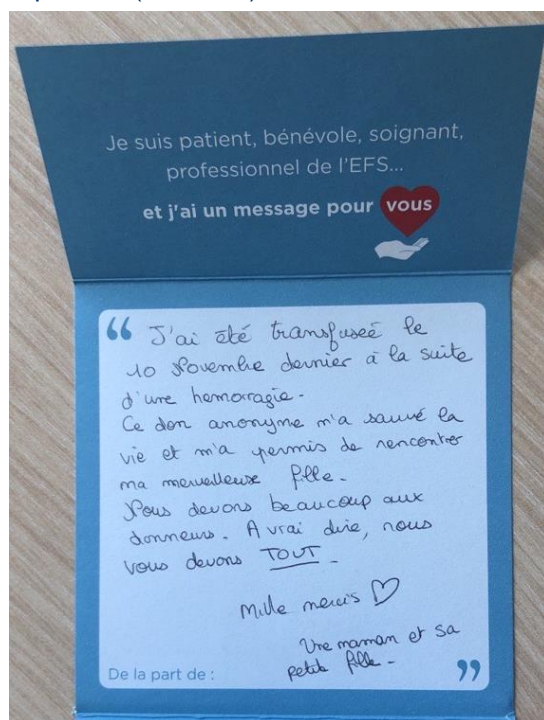 Je suis patient, bénévole, soignant,
professionnel de l'EFS...
et j'ai un message pour vous
“ J'ai été transfuseé le
10 Novembre dernier à la suite
d'une hemorragie.
Ce don anonyme m'a sauvé la
vie et m'a permis de rencontrer
ma merveilleuse fille.
Nous devons beaucoup aux
donneurs. A vrai dire, nous
vous devons TOUT.
Mille mercis ♡
Une maman et sa
petite fille. ”
De la part de :